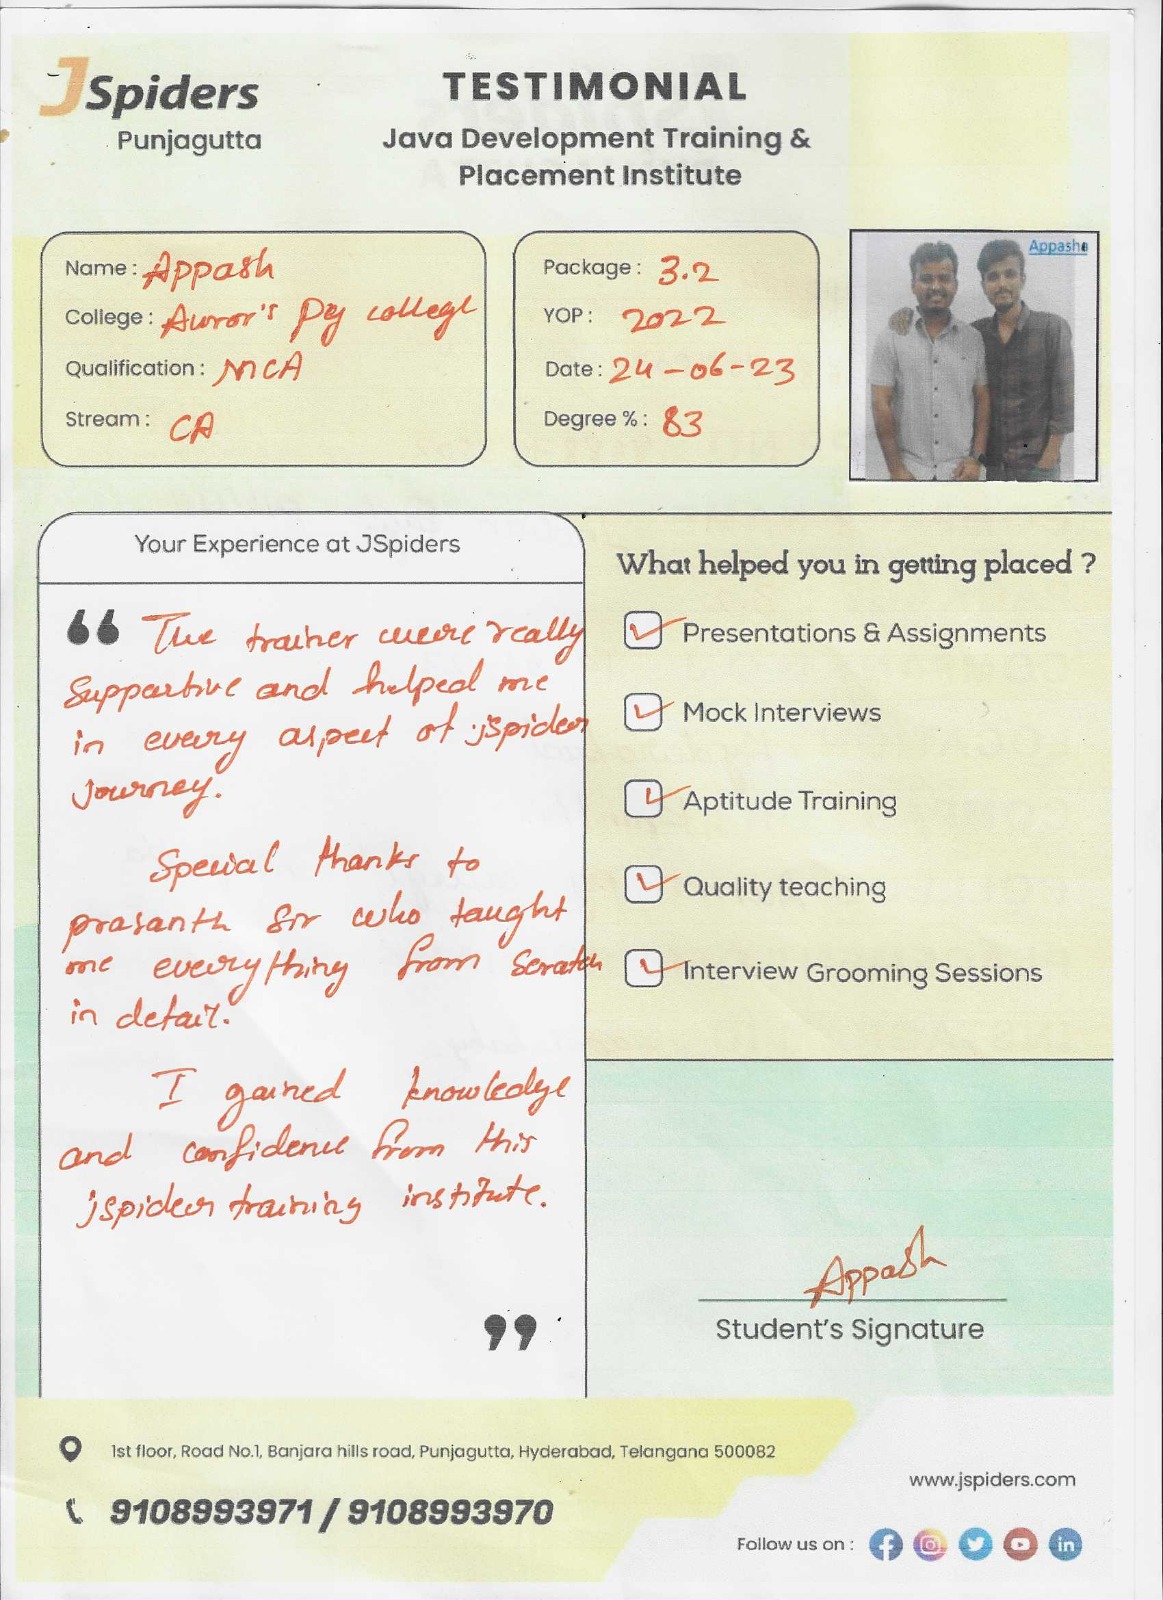 JSpiders
Punjagutta
TESTIMONIAL
Java Development Training &
Placement Institute
Name : Appash
College : Auror's Pg college
Qualification : MCA
Stream : CA
Package : 3.2
YOP : 2022
Date : 24-06-23
Degree % : 83
Appasha
Your Experience at JSpiders
“ The trainer were really
supportive and helped me
in every aspect of jspider
journey.
Special thanks to
prasanth Sir who taught
me everything from scratch
in detail.
I gained knowledge
and confidence from this
jspider training institute.
”
What helped you in getting placed ?
Presentations & Assignments
Mock Interviews
Aptitude Training
Quality teaching
Interview Grooming Sessions
Appash
Student's Signature
1st floor, Road No.1, Banjara hills road, Punjagutta, Hyderabad, Telangana 500082
9108993971 / 9108993970
www.jspiders.com
Follow us on :